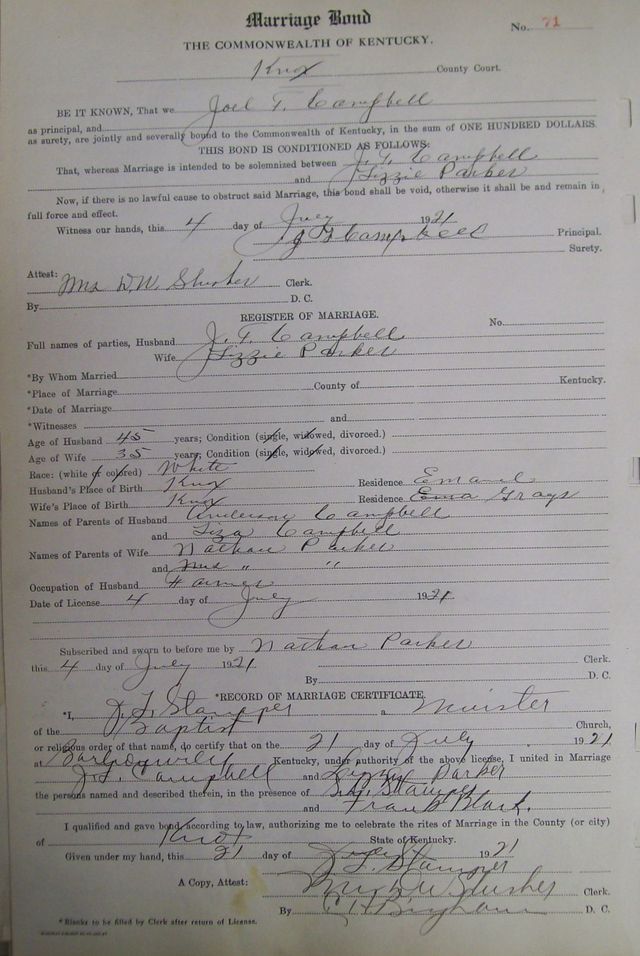 Marriage Bond
No. 71
THE COMMONWEALTH OF KENTUCKY.
Knox County Court.
BE IT KNOWN, That we Joel T. Campbell
as principal, and
as surety, are jointly and severally bound to the Commonwealth of Kentucky, in the sum of ONE HUNDRED DOLLARS.
THIS BOND IS CONDITIONED AS FOLLOWS:
That, whereas Marriage is intended to be solemnized between J. T. Campbell
and Lizzie Parker
Now, if there is no lawful cause to obstruct said Marriage, this bond shall be void, otherwise it shall be and remain in
full force and effect.
Witness our hands, this 4 day of July 1921
J T Campbell Principal.
Surety.
Attest:
Mrs D.W. Slusher Clerk.
By D. C.
REGISTER OF MARRIAGE.
No.
Full names of parties, Husband J. T. Campbell
Wife Lizzie Parker
*By Whom Married
*Place of Marriage County of Kentucky.
*Date of Marriage
*Witnesses and
Age of Husband 45 years; Condition (single, widowed, divorced.)
Age of Wife 35 years; Condition (single, widowed, divorced.)
Race: (white or colored) White
Husband's Place of Birth Knox Residence Emanuel
Wife's Place of Birth Knox Residence Grays
Names of Parents of Husband Anderson Campbell
and Liza Campbell
Names of Parents of Wife Nathan Parker
and Mrs " "
Occupation of Husband Farmer
Date of License 4 day of July 1921
Subscribed and sworn to before me by Nathan Parker
this 4 day of July 1921 Clerk.
By D. C.
*RECORD OF MARRIAGE CERTIFICATE.
*I, J. L. Stamper a Minister
of the Baptist Church,
or religious order of that name, do certify that on the 21 day of July 1921
at Barbourville Kentucky, under authority of the above license, I united in Marriage
J. T. Campbell and Lizzie Parker
the persons named and described therein, in the presence of Stamper
and Frank Black.
I qualified and gave bond, according to law, authorizing me to celebrate the rites of Marriage in the County (or city)
of Knox State of Kentucky.
Given under my hand, this 21 day of July 1921
J. L. Stamper
A Copy, Attest: Mrs D W Slusher Clerk.
By Bingham D. C.
*Blanks to be filled by Clerk after return of License.